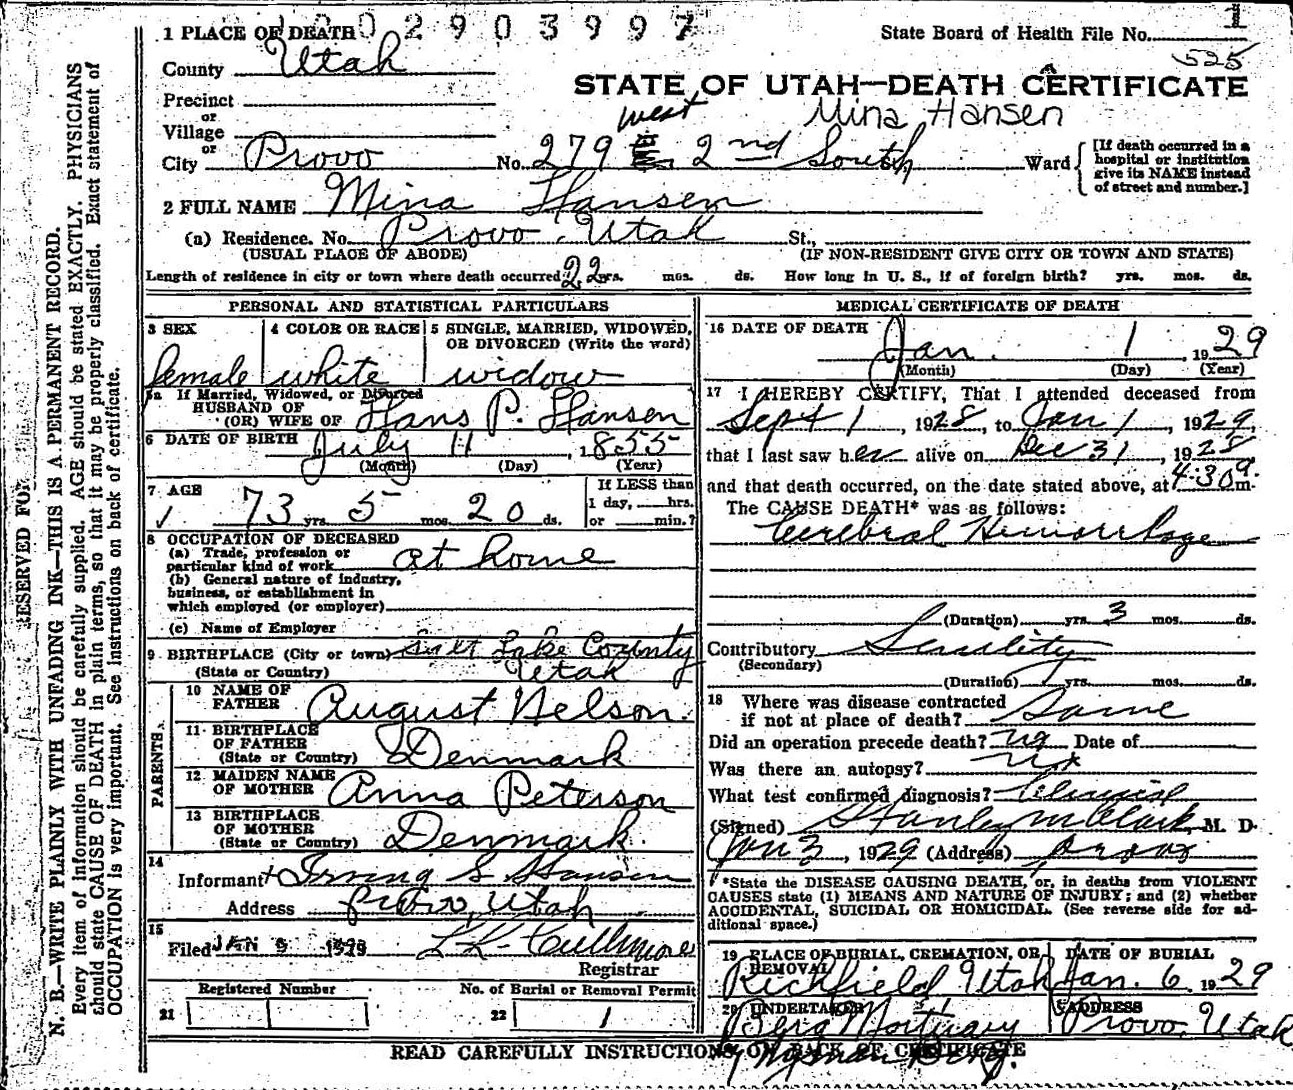 1002903997
1
1 PLACE OF DEATH
State Board of Health File No.
525
County Utah
STATE OF UTAH—DEATH CERTIFICATE
Precinct
or
Village
or
west
Mina Hansen
City Provo No. 279 E. 2nd South St, Ward
[If death occurred in a hospital or institution give its NAME instead of street and number.]
2 FULL NAME Mina Hansen
(a) Residence. No. Provo, Utah St.,
(USUAL PLACE OF ABODE) (IF NON-RESIDENT GIVE CITY OR TOWN AND STATE)
Length of residence in city or town where death occurred 22 yrs. mos. ds. How long in U. S., if of foreign birth? yrs. mos. ds.
PERSONAL AND STATISTICAL PARTICULARS
3 SEX 4 COLOR OR RACE 5 SINGLE, MARRIED, WIDOWED, OR DIVORCED (Write the word)
female white widow
5a If Married, Widowed, or Divorced
HUSBAND OF
(OR) WIFE OF Hans P. Hansen
6 DATE OF BIRTH July 11, 1855
(Month) (Day) (Year)
7 AGE
73 yrs. 5 mos. 20 ds.
If LESS than
1 day, hrs.
or min.?
8 OCCUPATION OF DECEASED
(a) Trade, profession or
particular kind of work at home
(b) General nature of industry,
business, or establishment in
which employed (or employer)
(c) Name of Employer
9 BIRTHPLACE (City or town) Salt Lake County
(State or Country) Utah
PARENTS
10 NAME OF
FATHER August Nelson.
11 BIRTHPLACE
OF FATHER
(State or Country) Denmark
12 MAIDEN NAME
OF MOTHER Anna Peterson
13 BIRTHPLACE
OF MOTHER
(State or Country) Denmark.
14
Informant Irving S Hansen
Address Provo, Utah
15
Filed JAN 1929
Registrar
Registered Number No. of Burial or Removal Permit
21 22 1
MEDICAL CERTIFICATE OF DEATH
16 DATE OF DEATH Jan. 1, 1929
(Month) (Day) (Year)
17 I HEREBY CERTIFY, That I attended deceased from
Sept 1, 1928, to Jan 1, 1929,
that I last saw her alive on Dec 31, 1928,
and that death occurred, on the date stated above, at 4:30 a m.
The CAUSE DEATH* was as follows:
Cerebral Hemorrhage
(Duration) yrs. 3 mos. ds.
Contributory Senility
(Secondary)
(Duration) yrs. mos. ds.
18 Where was disease contracted
if not at place of death? Same
Did an operation precede death? no Date of
Was there an autopsy? No
What test confirmed diagnosis? Clinical
(Signed) Stanley M Clark, M. D.
Jan 3, 1929 (Address) Provo
*State the DISEASE CAUSING DEATH, or, in deaths from VIOLENT
CAUSES state (1) MEANS AND NATURE OF INJURY; and (2) whether
ACCIDENTAL, SUICIDAL OR HOMICIDAL. (See reverse side for ad-
ditional space.)
19 PLACE OF BURIAL, CREMATION, OR REMOVAL DATE OF BURIAL
Richfield Utah Jan. 6, 1929
20 UNDERTAKER ADDRESS
Berg Mortuary Provo, Utah
READ CAREFULLY INSTRUCTIONS ON BACK OF CERTIFICATE
RESERVED FOR
N. B.—WRITE PLAINLY WITH UNFADING INK—THIS IS A PERMANENT RECORD.
Every item of information should be carefully supplied. AGE should be stated EXACTLY. PHYSICIANS
should state CAUSE OF DEATH in plain terms, so that it may be properly classified. Exact statement of
OCCUPATION is very important. See instructions on back of certificate.